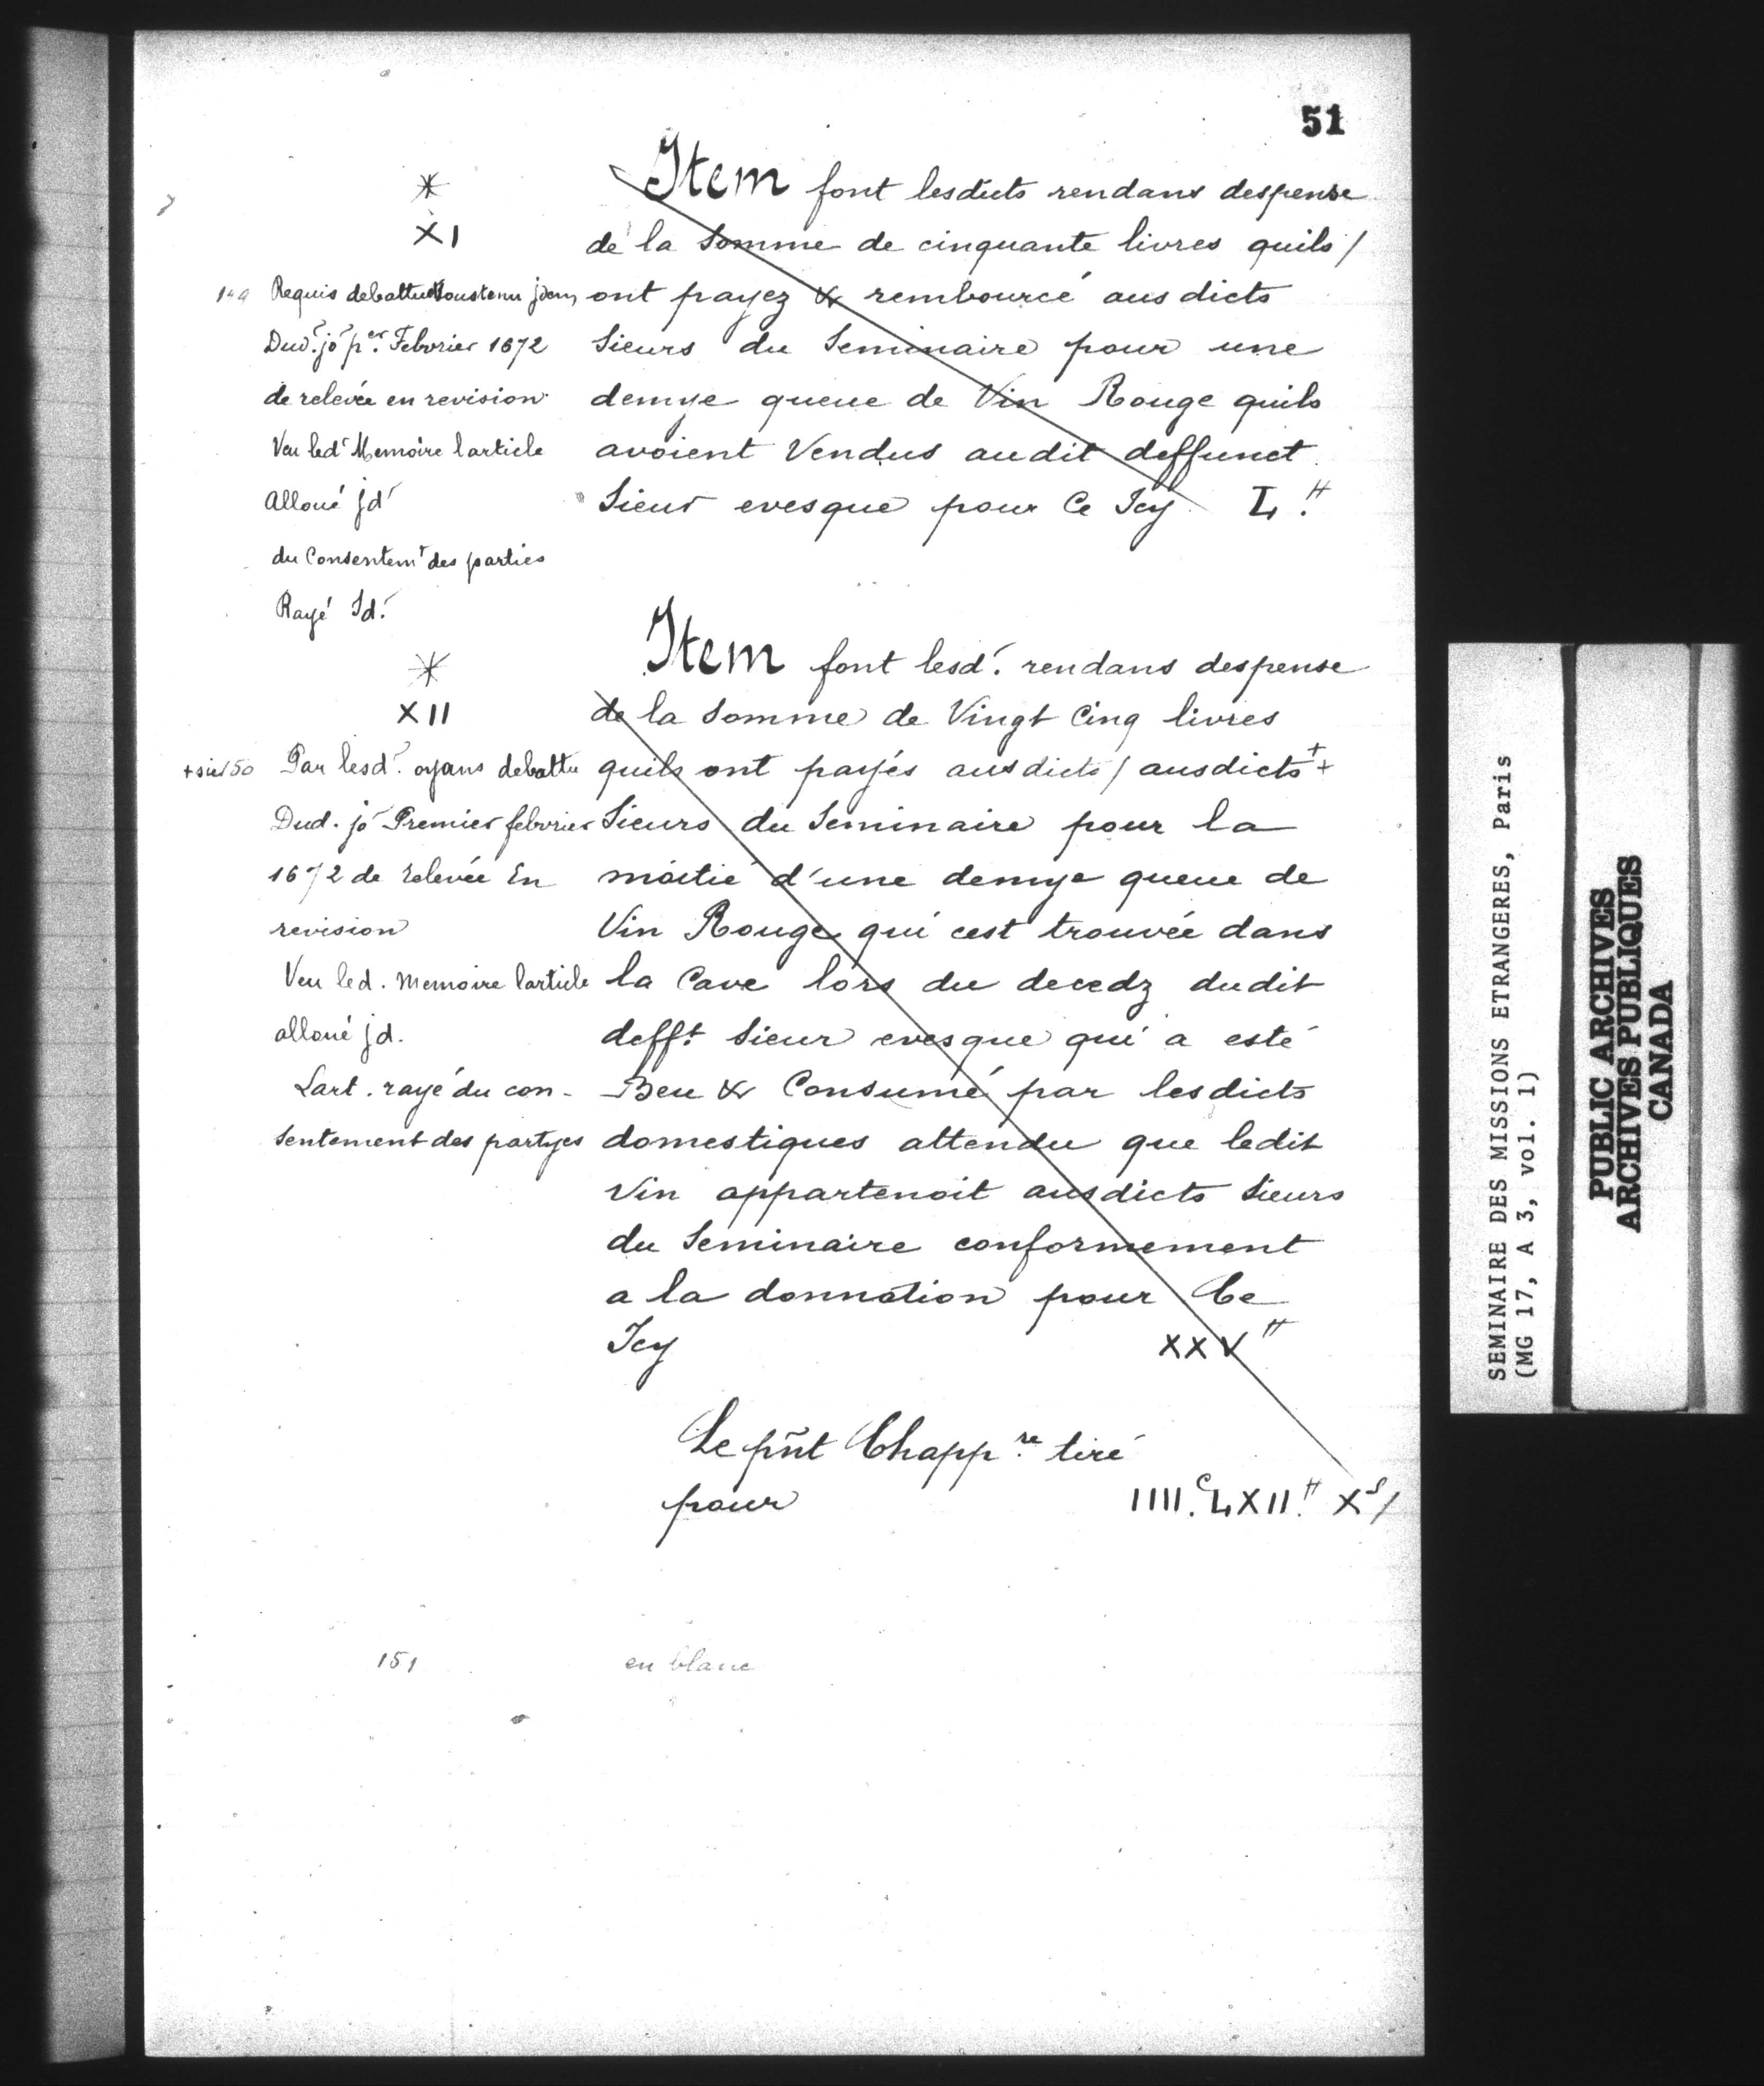 51
*
XI
149 Requis debattu Soustenu jdem
Dud. jo per. Febvrier 1672
de relevée en revision
Veu led Memoire larticle
Alloué jd
du Consentemt des parties
Rayé Id.
Item font lesdicts rendans despense
de la Somme de cinquante livres quils /
ont payez & rembourcé aus dicts
Sieurs du Seminaire pour une
demye queue de Vin Rouge quils
avoient Vendus audit deffunct
Sieur evesque pour Ce Icy L.tt
*
XII
+ sic 150 Par lesd. oyans debattu
Dud. jo Premier febvrier
1672 de relevée En
revision
Veu led. memoire larticle
alloué jd.
Lart. rayé du con-
sentement des partyes
Item font lesd. rendans despense
de la Somme de Vingt Cinq livres
quils ont payés ausdicts / ausdicts + +
Sieurs du Seminaire pour la
moitié d'une demye queue de
Vin Rouge qui cest trouvée dans
la Cave lors du decedz dudit
defft Sieur evesque qui a esté
Beu & Consumé par lesdicts
domestiques attendu que ledit
Vin appartenoit ausdicts Sieurs
du Seminaire conformement
a la donnation pour Ce
Icy XXV tt
Le pñt Chappre tiré
pour IIII.c LXII.tt Xs/
151 en blanc
SEMINAIRE DES MISSIONS ETRANGERES, Paris
(MG 17, A 3, vol. 1)
PUBLIC ARCHIVES
ARCHIVES PUBLIQUES
CANADA